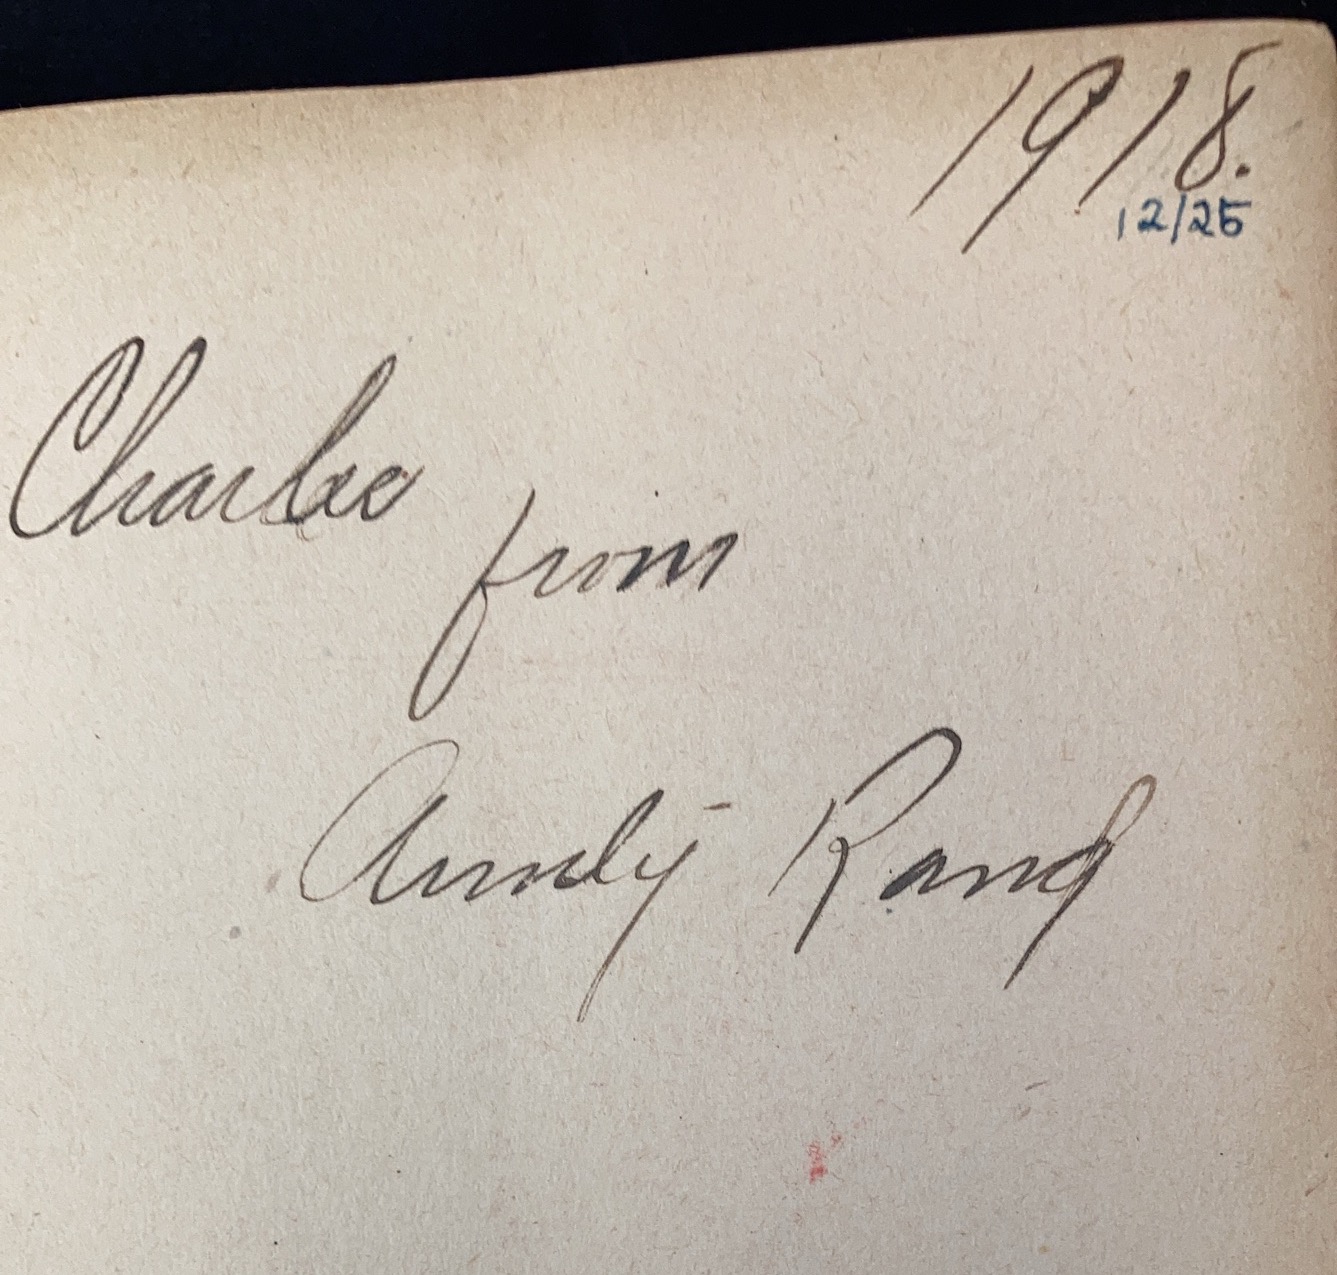 1918.
12/25
Charlee
from
Aundy Rand